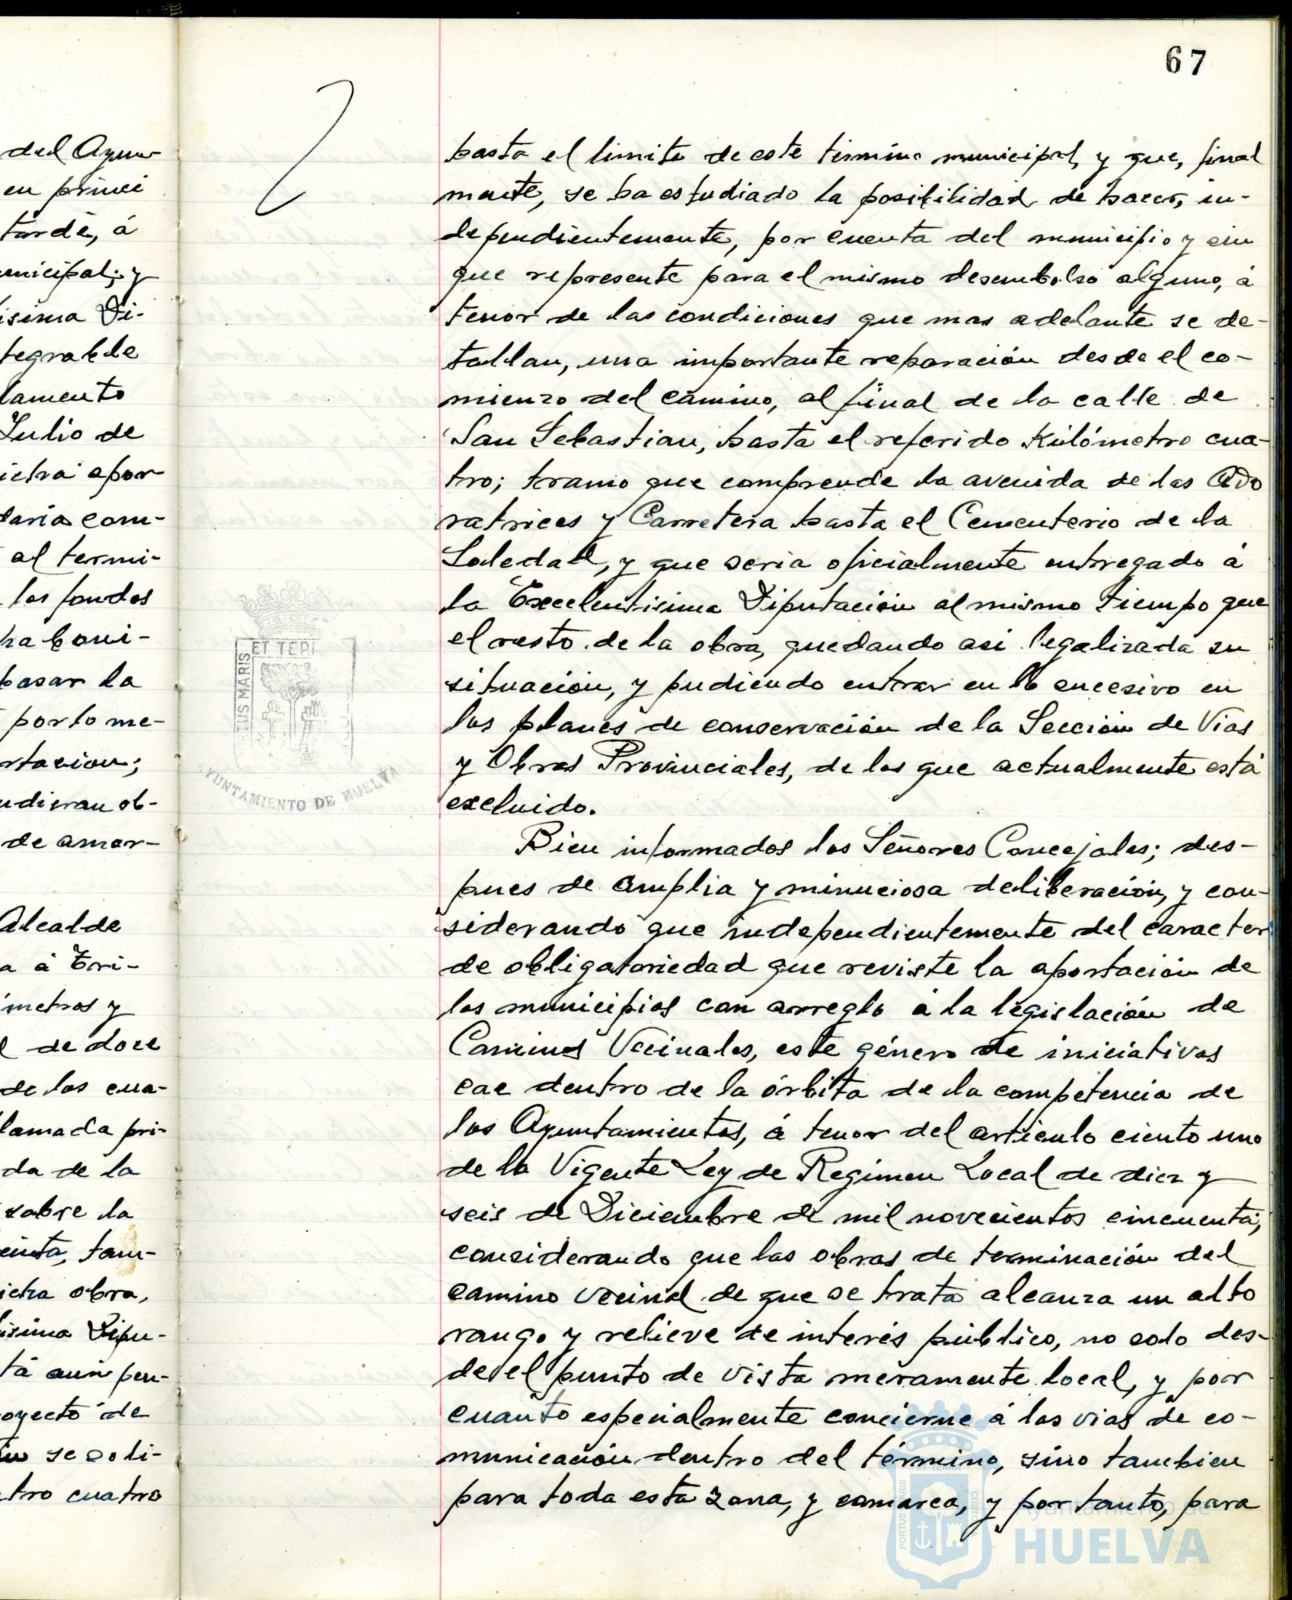 67
del Ayun-
en princi
tarde, á
unicipal; y
ísima Di-
tegrable
lamento
Julio de
icha apor-
taria com-
al termi-
los fondos
pasar la
por lo me-
rtacion;
udieran ob-
de amor-
Alcalde
a á Tri-
ímetros y
l de doce
de los cua-
lamada pri-
da de la
sobre la
cinta, tam-
icha obra,
ísima Dipu-
tá aun pen-
oyecto de
se soli-
tro cuatro
hasta el limite de este término municipal, y que, final
mente, se ha estudiado la posibilidad de hacer, in-
dependientemente, por cuenta del municipio y sin
que represente para el mismo desembolso alguno, á
tenor de las condiciones que mas adelante se de-
tallan, una importante reparación desde el co-
mienzo del camino, al final de la calle de
San Sebastian, hasta el referido Kilómetro cua-
tro; tramo que comprende la avenida de las Ado
ratrices y Carretera hasta el Cementerio de la
Soledad, y que seria oficialmente entregado á
la Excelentisima Diputación al mismo tiempo que
el resto de la obra, quedando asi legalizada su
situación, y pudiendo entrar en lo sucesivo en
los planes de conservación de la Sección de Vias
y Obras Provinciales, de los que actualmente está
excluido.
Bien informados los Señores Concejales; des-
pues de amplia y minuciosa deliberación, y con-
siderando que independientemente del caracter
de obligatoriedad que reviste la aportación de
los municipios con arreglo á la legislación de
Caminos Vecinales, este género de iniciativas
cae dentro de la órbita de la competencia de
los Ayuntamientos, á tenor del articulo ciento uno
de la Vigente Ley de Regimen Local de diez y
seis de Diciembre de mil novecientos cincuenta;
considerando que las obras de terminación del
camino vecinal de que se trata alcanza un alto
rango y relieve de interés público, no solo des-
de el punto de vista meramente local, y por
cuanto especialmente concierne á las vias de co-
municación dentro del término, sino tambien
para toda esta zona, y comarca, y por tanto, para
ET TERI
US MARIS
AYUNTAMIENTO DE HUELVA
Ayuntamiento de
HUELVA